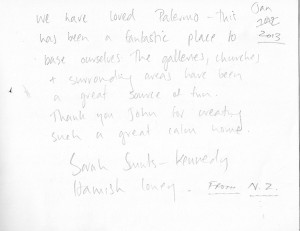 We have loved Palermo - this
has been a fantastic place to
base ourselves The galleries, churches
+ surrounding areas have been
a great source of fun.
Thank you John for creating
such a great calm home.
Jan
2013
Sarah - Kennedy
Hamish. From N.Z.